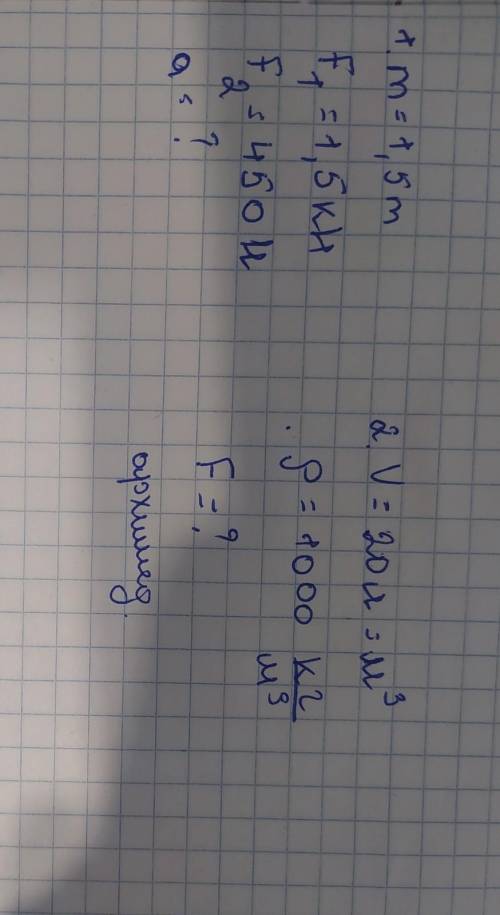 1. m = 1,5 т
F₁ = 1,5 кН
F₂ = 450 Н
a = ?
2. V = 20 л = м³
ρ = 1000 кг/м³
F = ?
архимед.